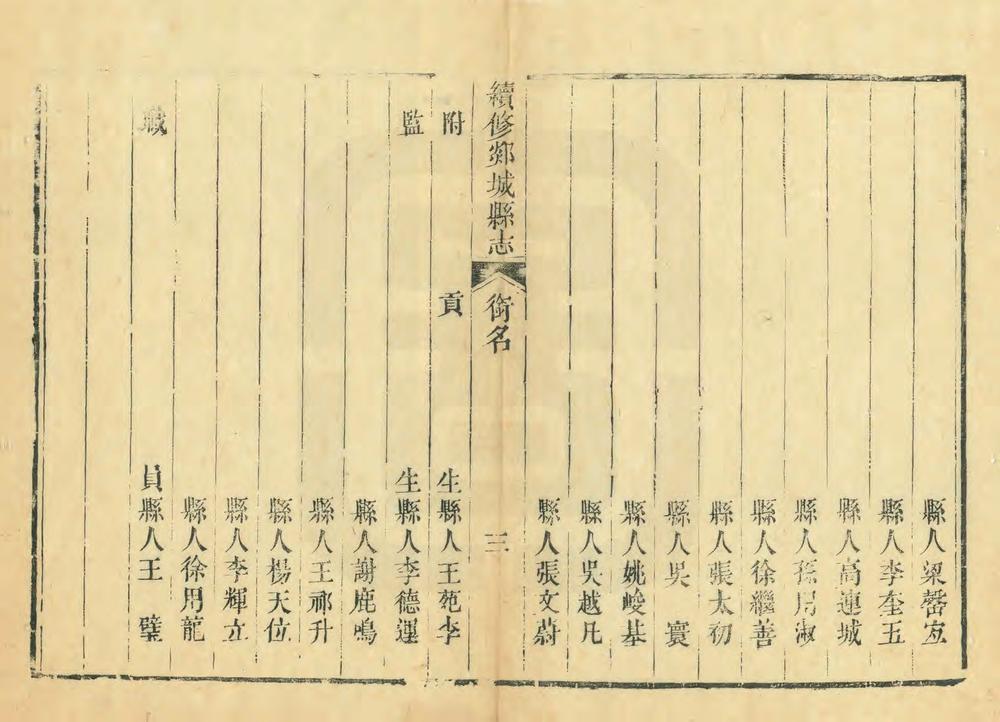 縣人梁馨宜
縣人李奎五
縣人高連城
縣人孫用淑
縣人徐繼善
縣人張太初
縣人吳寰
縣人姚峻基
縣人吳越凡
縣人張文蔚
續修郯城縣志 銜名 三
附貢生縣人王苑李
監生縣人李德運
縣人謝鹿鳴
縣人王祁升
縣人楊天位
縣人李輝立
縣人徐用龍
職員縣人王璧